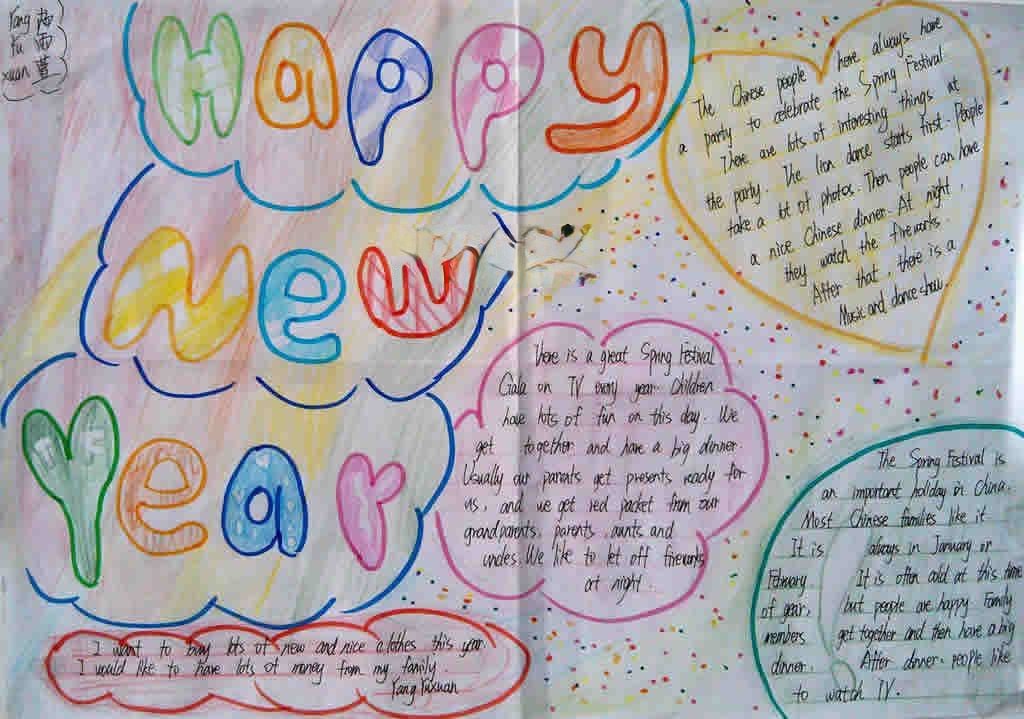 Yang
Yu 雨
xuan 萱
Happy
New
Year
The Chinese people here always have
a party to celebrate the Spring Festival
There are lots of interesting things at
the party. The lion dance starts first. People
take a lot of photos. Then people can have
a nice Chinese dinner. At night,
they watch the fireworks.
After that, there is a
Music and dance show.
There is a great Spring Festival
Gala on TV every year. Children
have lots of fun on this day. We
get together and have a big dinner.
Usually our parents get presents ready for
us, and we get red packet from our
grandparents, parents, aunts and
uncles. We like to let off fireworks
at night.
The Spring Festival is
an important holiday in China.
Most Chinese families like it
It is always in January or
February It is often cold at this time
of year, but people are happy. Family
members get together and then have a big
dinner. After dinner, people like
to watch TV.
I want to buy lots of new and nice clothes this year
I would like to have lots of money from my family.
Yang Yuxuan